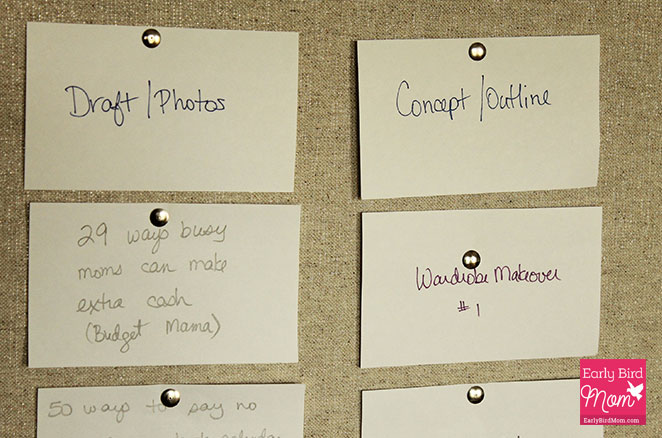 Draft/Photos
29 ways busy
moms can make
extra cash
(Budget Mama)
50 ways to say no
Concept/Outline
Wardrobe Makeover
#1
Early Bird
Mom
EarlyBirdMom.com